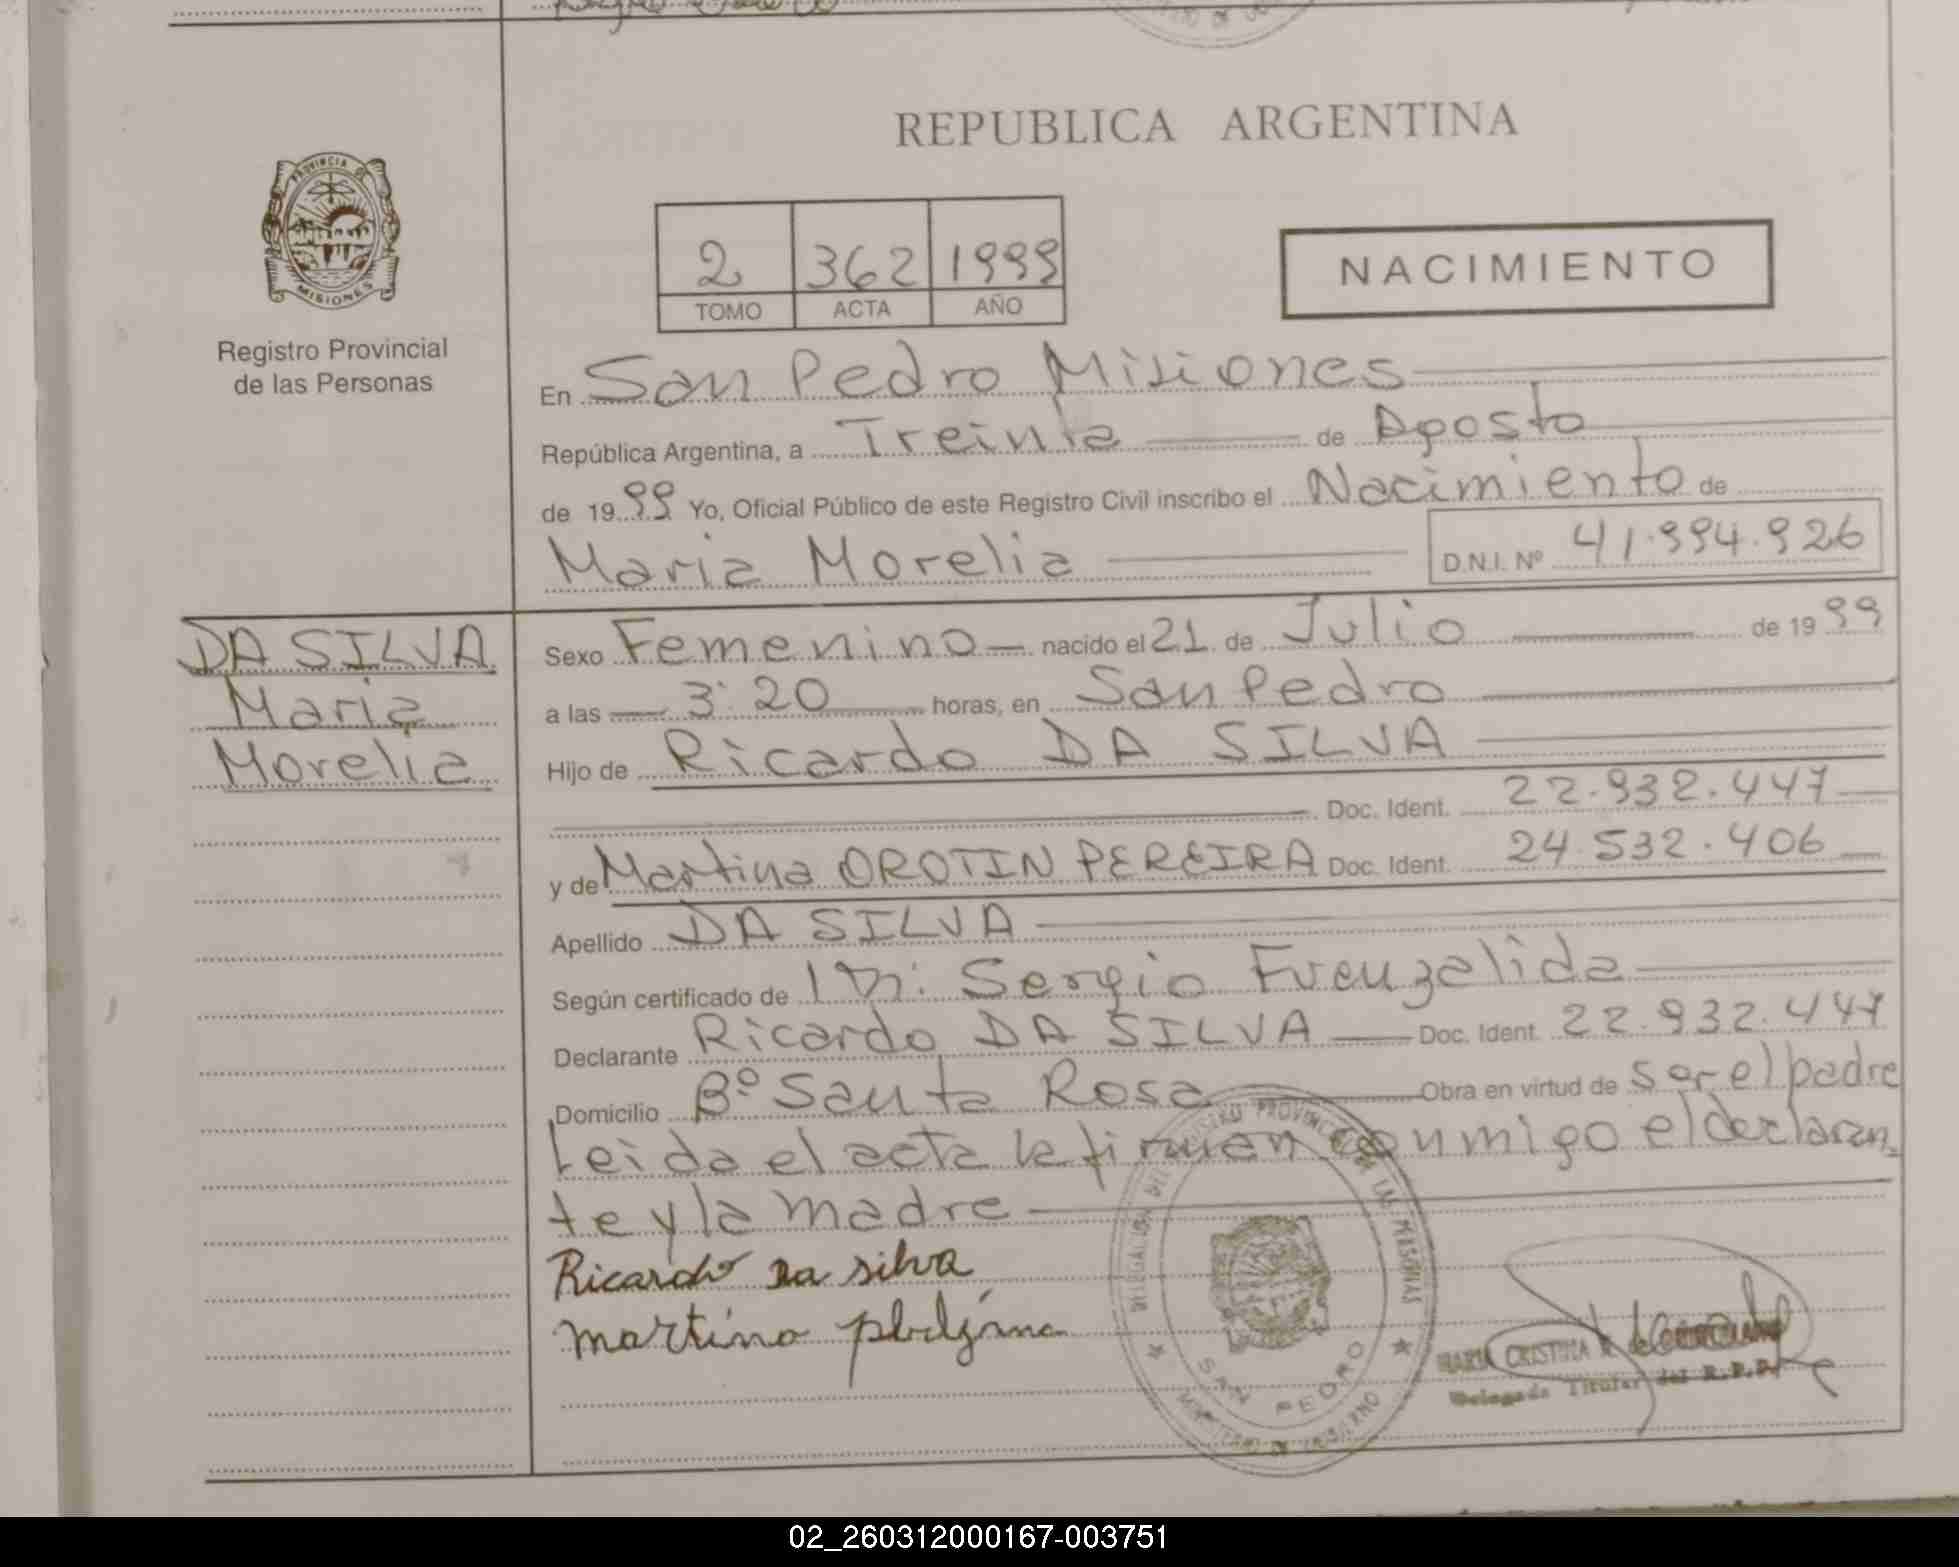 REPUBLICA ARGENTINA
PROVINCIA DE
MISIONES
Registro Provincial
de las Personas
2 362 1999
TOMO ACTA AÑO
NACIMIENTO
En San Pedro Misiones
República Argentina, a Treinta de Agosto
de 1999 Yo, Oficial Público de este Registro Civil inscribo el Nacimiento de
Maria Morelia D.N.I. Nº 41.994.926
DA SILVA
Maria
Morelia
Sexo Femenino nacido el 21 de Julio de 1999
a las 3:20 horas, en San Pedro
Hijo de Ricardo DA SILVA
Doc. Ident. 22.932.447
y de Martina OROTIN PEREIRA Doc. Ident. 24.532.406
Apellido DA SILVA
Según certificado de Sergio Fuenzalida
Declarante Ricardo DA SILVA Doc. Ident. 22.932.447
Domicilio Bº Santa Rosa Obra en virtud de ser el padre
Leida el acta la firman conmigo el declaran
te y la madre
Ricardo Da silva
martina
SAN PEDRO
MARIA CRISTINA
Delegada Titular del R.P.P.
02_260312000167-003751